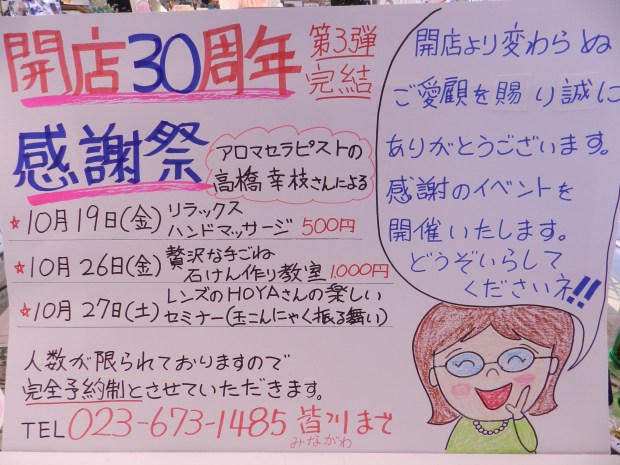 開店30周年
第3弾
完結
感謝祭
アロマセラピストの
高橋幸枝さんによる
★10月19日(金) リラックス
ハンドマッサージ 500円
★10月26日(金) 贅沢な手ごね
石けん作り教室 1,000円
★10月27日(土) レンズのHOYAさんの楽しい
セミナー(玉こんにゃく振る舞い)
人数が限られておりますので
完全予約制とさせていただきます。
TEL 023-673-1485 皆川まで
みながわ
開店より変わらぬ
ご愛顧を賜り誠に
ありがとうございます。
感謝のイベントを
開催いたします。
どうぞいらして
くださいネ!!